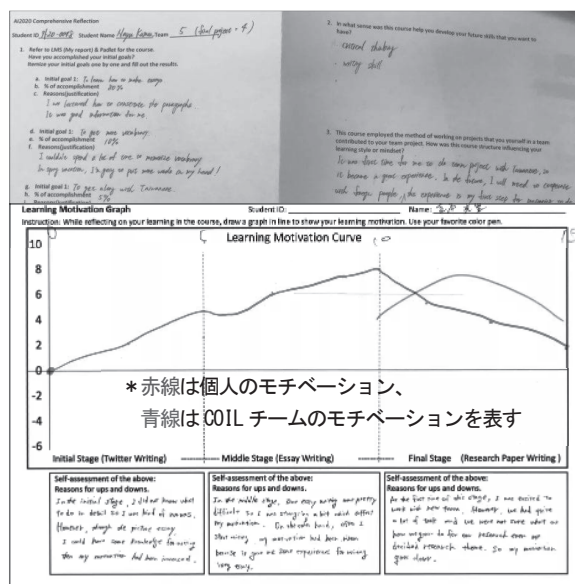 AI2020 Comprehensive Reflection
Student ID Student Name Team 5 (final project - 4)
1. Refer to LMS (My report) & Padlet for the course.
Have you accomplished your initial goals?
Itemize your initial goals one by one and fill out the results.
a. Initial goal 1: To learn how to make essay
b. % of accomplishment 20%
c. Reasons(justification)
I we learned how to construct the paragraphs.
It was good information for me.
d. Initial goal 1: To get more vocabulary.
e. % of accomplishment 10%
f. Reasons(justification)
I couldn't spend a lot of time to memorize vocabulary.
In my opinion, I'm going to put more words in my head!
g. Initial goal 1: To get along with Taiwanese.
h. % of accomplishment 5%
2. In what sense was this course help you develop your future skills that you want to
have?
- writing skill
3. This course employed the method of working on projects that you yourself in a team
contributed to your team project. How was this course structure influencing your
learning style or mindset?
It was first time for me to do some project with Taiwanese, so
it became a good experience. In the future, I will need to cooperate
with foreign people, the experience is my first step for
Learning Motivation Graph Student ID: Name:
Instruction: While reflecting on your learning in the course, draw a graph in line to show your learning motivation. Use your favorite color pen.
0 5 10 15
Learning Motivation Curve
10
8
6
4
2
0
-2
-4
-6
*赤線は個人のモチベーション、
青線は COIL チームのモチベーションを表す
Initial Stage (Twitter Writing) Middle Stage (Essay Writing) Final Stage (Research Paper Writing )
Self-assessment of the above:
Reasons for ups and downs.
In the initial stage, I did not know what
to do in detail so I was kind of nervous.
However, through the picture essay,
I could have some knowledge for writing
then my motivation had been increased.
Self-assessment of the above:
Reasons for ups and downs.
In the middle stage, our essay writing was pretty
difficult so I was struggling a bit which affect
my motivation. On the other hand, after I
start writing, my motivation had been risen
because it gave me some experiences for writing
very essay.
Self-assessment of the above:
Reasons for ups and downs.
At the first time of this stage, I was excited to
work with new team. However, we had quite
a lot of task and we were not sure what or
how we going to do for our research even we
decided research theme. So my motivation
goes down.